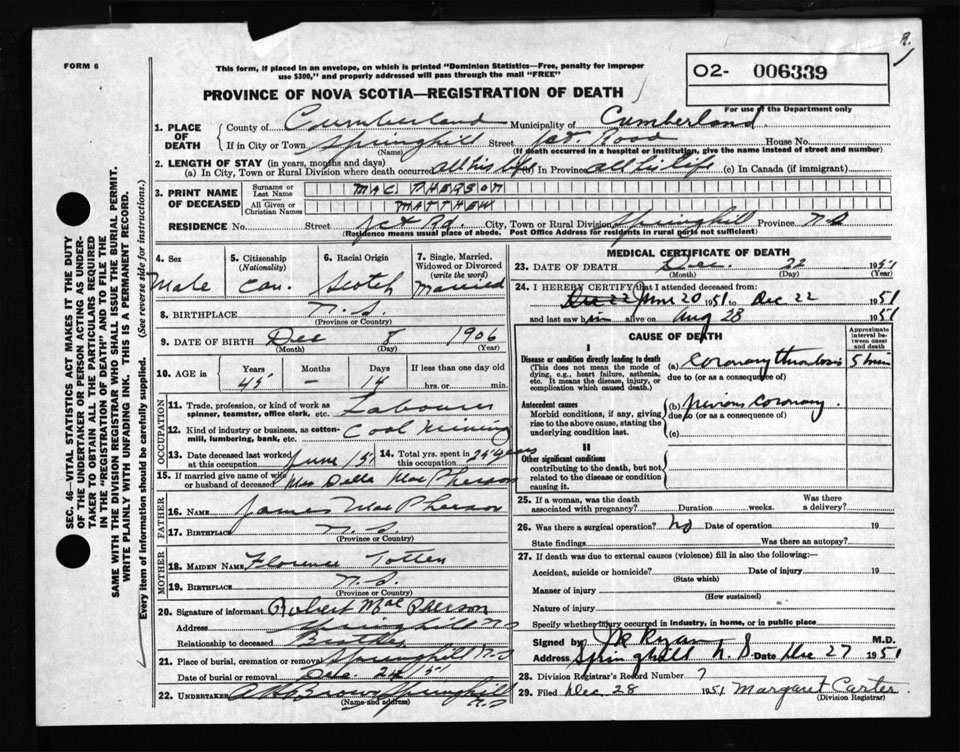 R.
FORM 6
This form, if placed in an envelope, on which is printed "Dominion Statistics—Free, penalty for improper
use $300," and properly addressed will pass through the mail "FREE"
02- 006339
For use of the Department only
PROVINCE OF NOVA SCOTIA—REGISTRATION OF DEATH
SEC. 46—VITAL STATISTICS ACT MAKES IT THE DUTY
OF THE UNDERTAKER OR PERSON ACTING AS UNDER-
TAKER TO OBTAIN ALL THE PARTICULARS REQUIRED
IN THE "REGISTRATION OF DEATH" AND TO FILE THE
SAME WITH THE DIVISION REGISTRAR WHO SHALL ISSUE THE BURIAL PERMIT.
WRITE PLAINLY WITH UNFADING INK. THIS IS A PERMANENT RECORD.
Every item of information should be carefully supplied. (See reverse side for instructions.)
1. PLACE OF DEATH
County of Cumberland Municipality of Cumberland
If in City or Town Springhill Street Jct. Road House No.
(Name) (If death occurred in a hospital or institution, give the name instead of street and number)
2. LENGTH OF STAY (in years, months and days)
(a) In City, Town or Rural Division where death occurred all his life (b) In Province all his life (c) In Canada (if immigrant)
3. PRINT NAME OF DECEASED
Surname or Last Name MAC PHERSON
All Given or Christian Names MATTHEW
RESIDENCE No. Street Jct Rd. City, Town or Rural Division Springhill Province N.S
(Residence means usual place of abode. Post Office Address for residents in rural parts not sufficient)
4. Sex Male
5. Citizenship (Nationality) Can.
6. Racial Origin Scotch
7. Single, Married, Widowed or Divorced (write the word) Married
8. BIRTHPLACE N.S.
(Province or Country)
9. DATE OF BIRTH Dec 8 1906
(Month) (Day) (Year)
10. AGE in Years 45 Months – Days 14 If less than one day old hrs. or min.
OCCUPATION
11. Trade, profession or kind of work as spinner, teamster, office clerk, etc. Labourer
12. Kind of industry or business, as cotton-mill, lumbering, bank, etc. Coal Mining
13. Date deceased last worked at this occupation June /51
14. Total yrs. spent in this occupation years
15. If married give name of wife or husband of deceased Mrs Della MacPherson
FATHER
16. NAME James MacPherson
17. BIRTHPLACE N.S.
(Province or Country)
MOTHER
18. MAIDEN NAME Florence Totten
19. BIRTHPLACE N.S.
(Province or Country)
20. Signature of informant Robert MacPherson
Address Springhill N.S
Relationship to deceased Brother
21. Place of burial, cremation or removal Springhill N.S
Date of burial or removal Dec. 24 /51
22. UNDERTAKER Brown Springhill N.S
(Name and address)
MEDICAL CERTIFICATE OF DEATH
23. DATE OF DEATH Dec. 22 1951
(Month) (Day) (Year)
24. I HEREBY CERTIFY that I attended deceased from:
Dec 22 June 20 1951 to Dec 22 1951
and last saw him alive on Aug 28 1951
CAUSE OF DEATH
Approximate interval between onset and death
I
Disease or condition directly leading to death (a) Coronary thrombosis 5 min
(This does not mean the mode of dying, e.g., heart failure, asthenia, etc. It means the disease, injury, or complication which caused death.)
due to (or as a consequence of)
Antecedent causes (b) previous coronary
Morbid conditions, if any, giving rise to the above cause, stating the underlying condition last.
due to (or as a consequence of)
(c)
II
Other significant conditions
contributing to the death, but not related to the disease or condition causing it.
25. If a woman, was the death associated with pregnancy? Duration weeks. Was there a delivery?
26. Was there a surgical operation? no Date of operation 19
State findings Was there an autopsy?
27. If death was due to external causes (violence) fill in also the following:—
Accident, suicide or homicide? Date of injury 19
(State which)
Manner of injury
(How sustained)
Nature of injury
Specify whether injury occurred in industry, in home, or in public place
Signed by Ryan M.D.
Address Springhill N.S. Date Dec 27 1951
28. Division Registrar's Record Number 7
29. Filed Dec. 28 1951 Margaret Carter.
(Division Registrar)